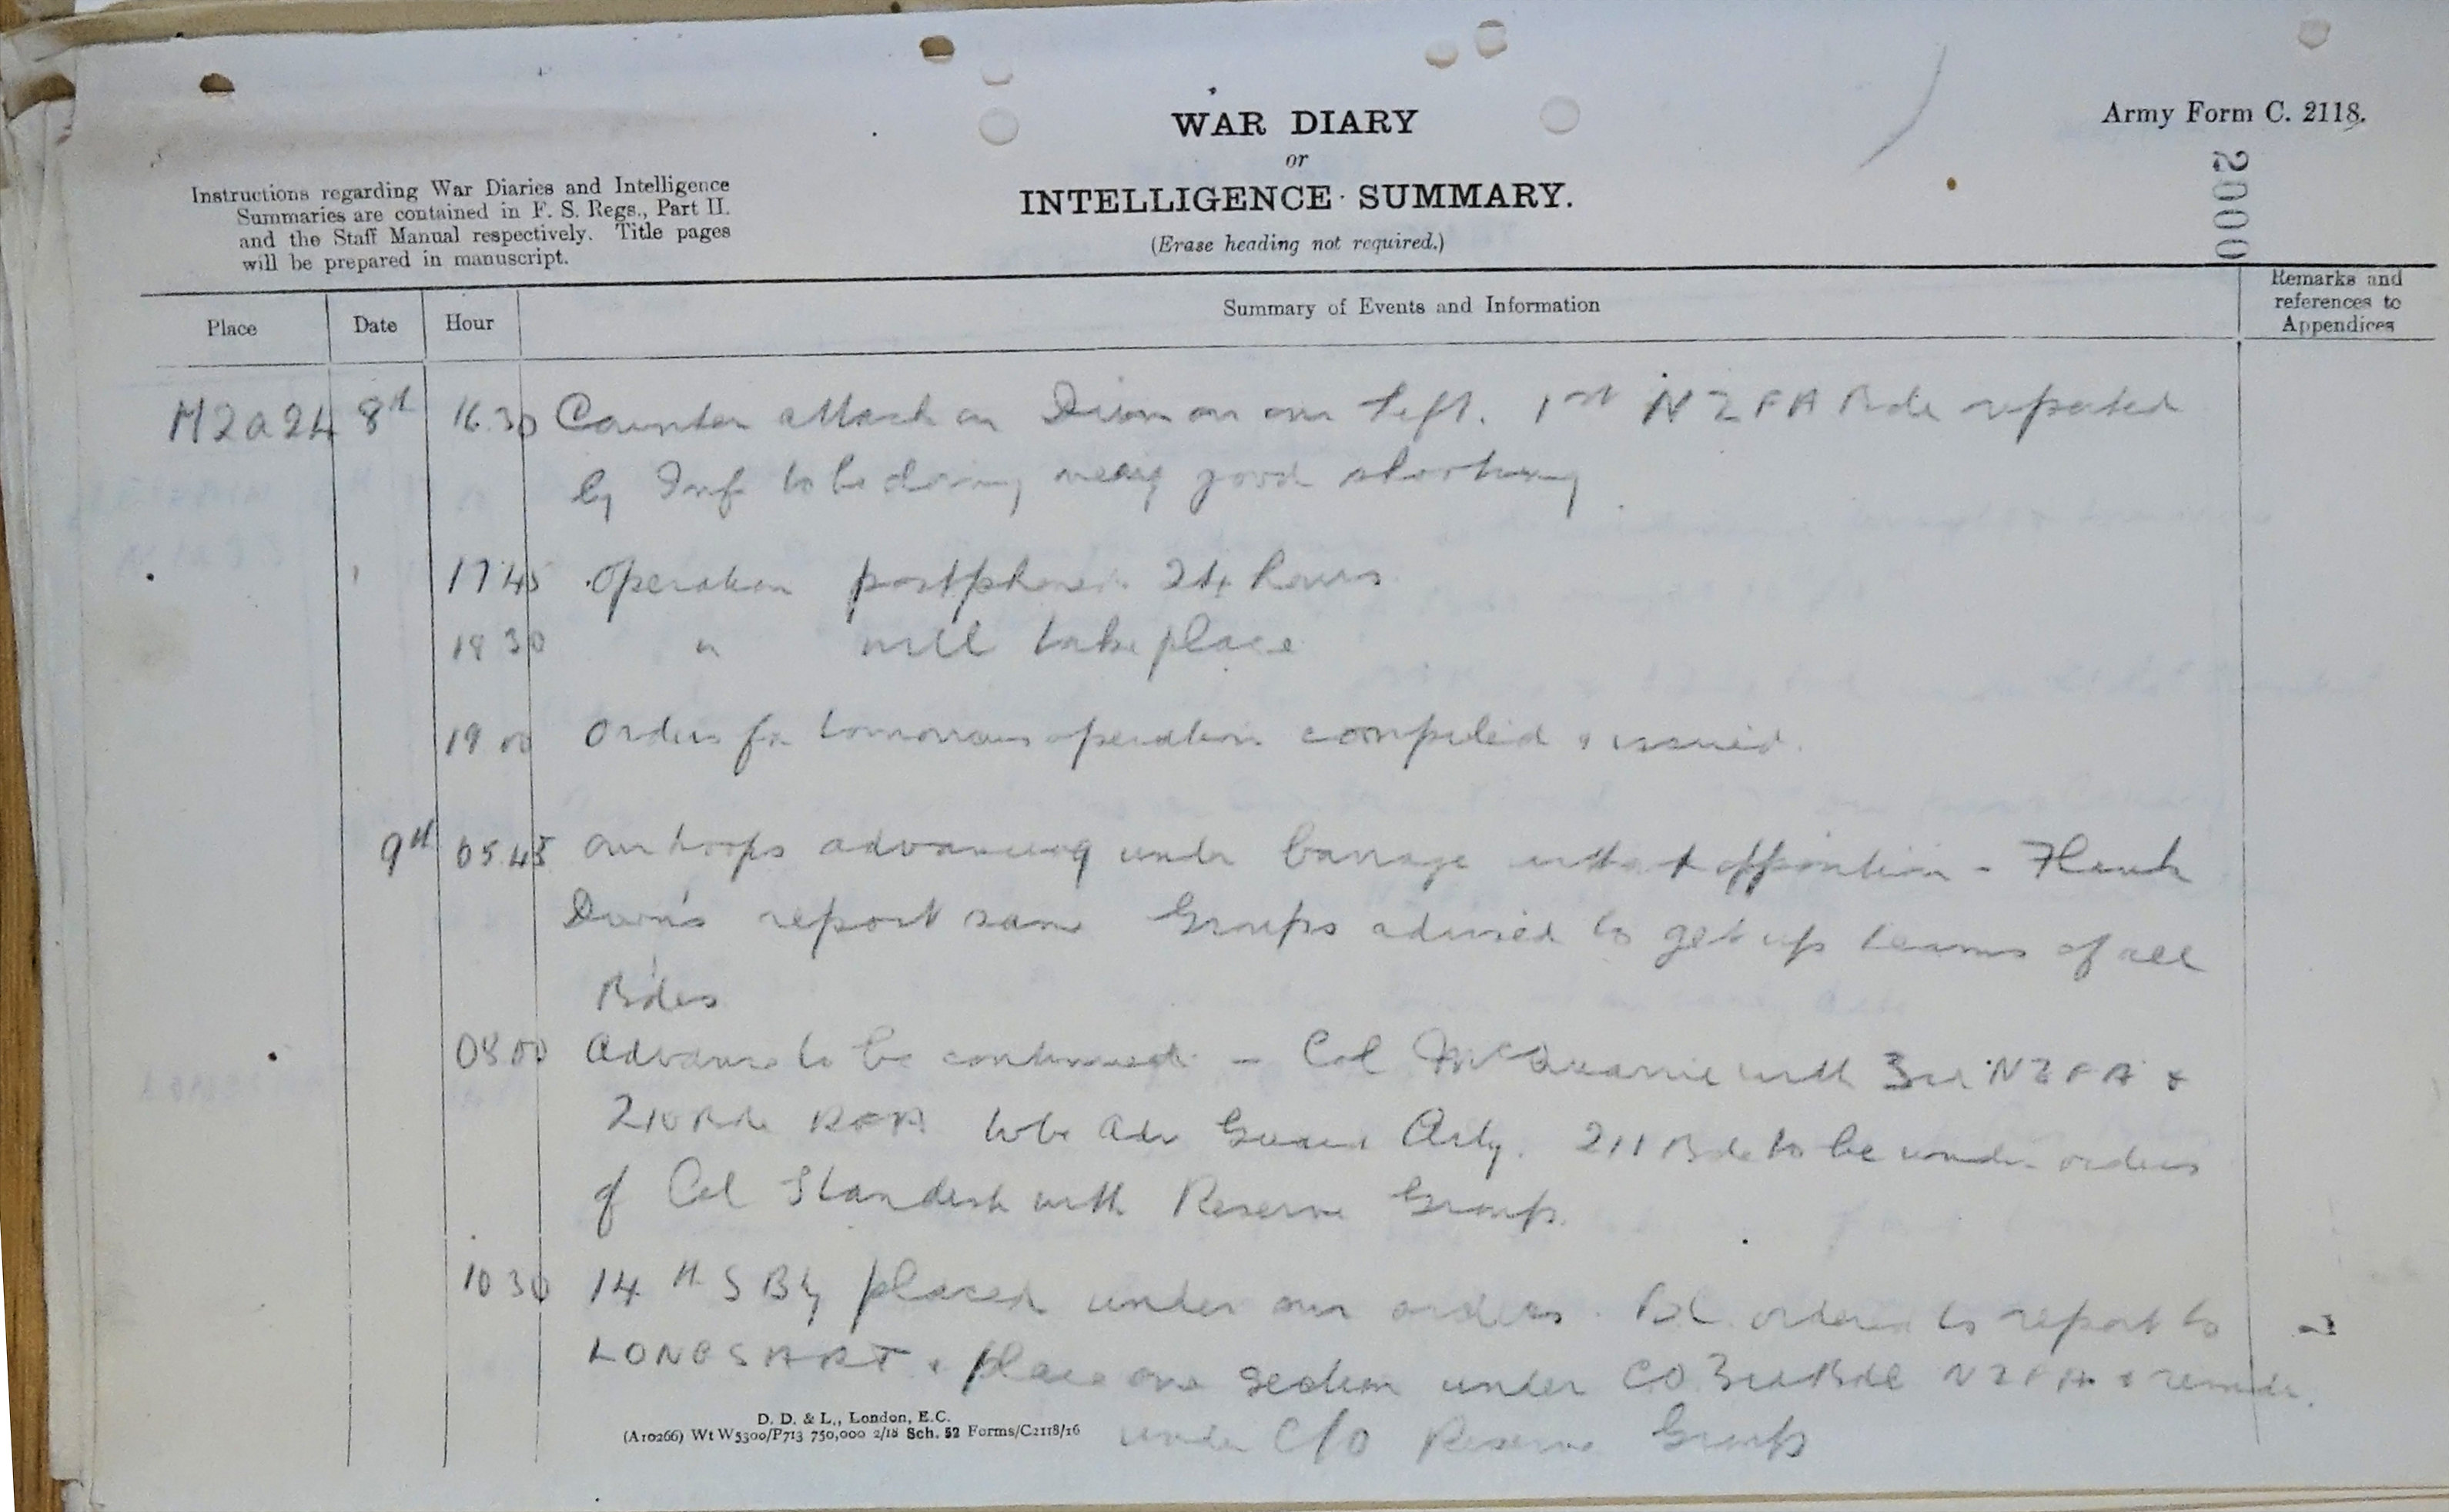 WAR DIARY
or
INTELLIGENCE SUMMARY.
(Erase heading not required.)
Army Form C. 2118.
2000
Instructions regarding War Diaries and Intelligence
Summaries are contained in F. S. Regs., Part II.
and the Staff Manual respectively. Title pages
will be prepared in manuscript.
Place Date Hour Summary of Events and Information Remarks and
references to
Appendices
M2a24 8th 16.30 Counter attack on Divn on our left. 1st NZFA Bde reported
by Inf to be doing very good shooting
17.45 Operation postphoned 24 hours
18 30 " will take place
19 00 Orders for tomorrows operation compiled & issued.
9th 05.45 Our troops advancing under barrage without opposition - Flank
Divn's report same Groups advised to get up teams of all
Bdes
08 00 Advance to be continued - Col McQuarrie with 3rd NZFA &
210 Bde RFA to be Adv Guard Arty. 211 Bde to be under orders
of Col Standish with Reserve Group.
10 30 14th S By placed under our orders. ordered to report to
LONGSART & place one section under CO 3rd Bde NZFA & remdr.
under C/O Reserve Group
D. D. & L., London, E.C.
(A10266) Wt W5300/P713 750,000 2/18 Sch. 52 Forms/C2118/16